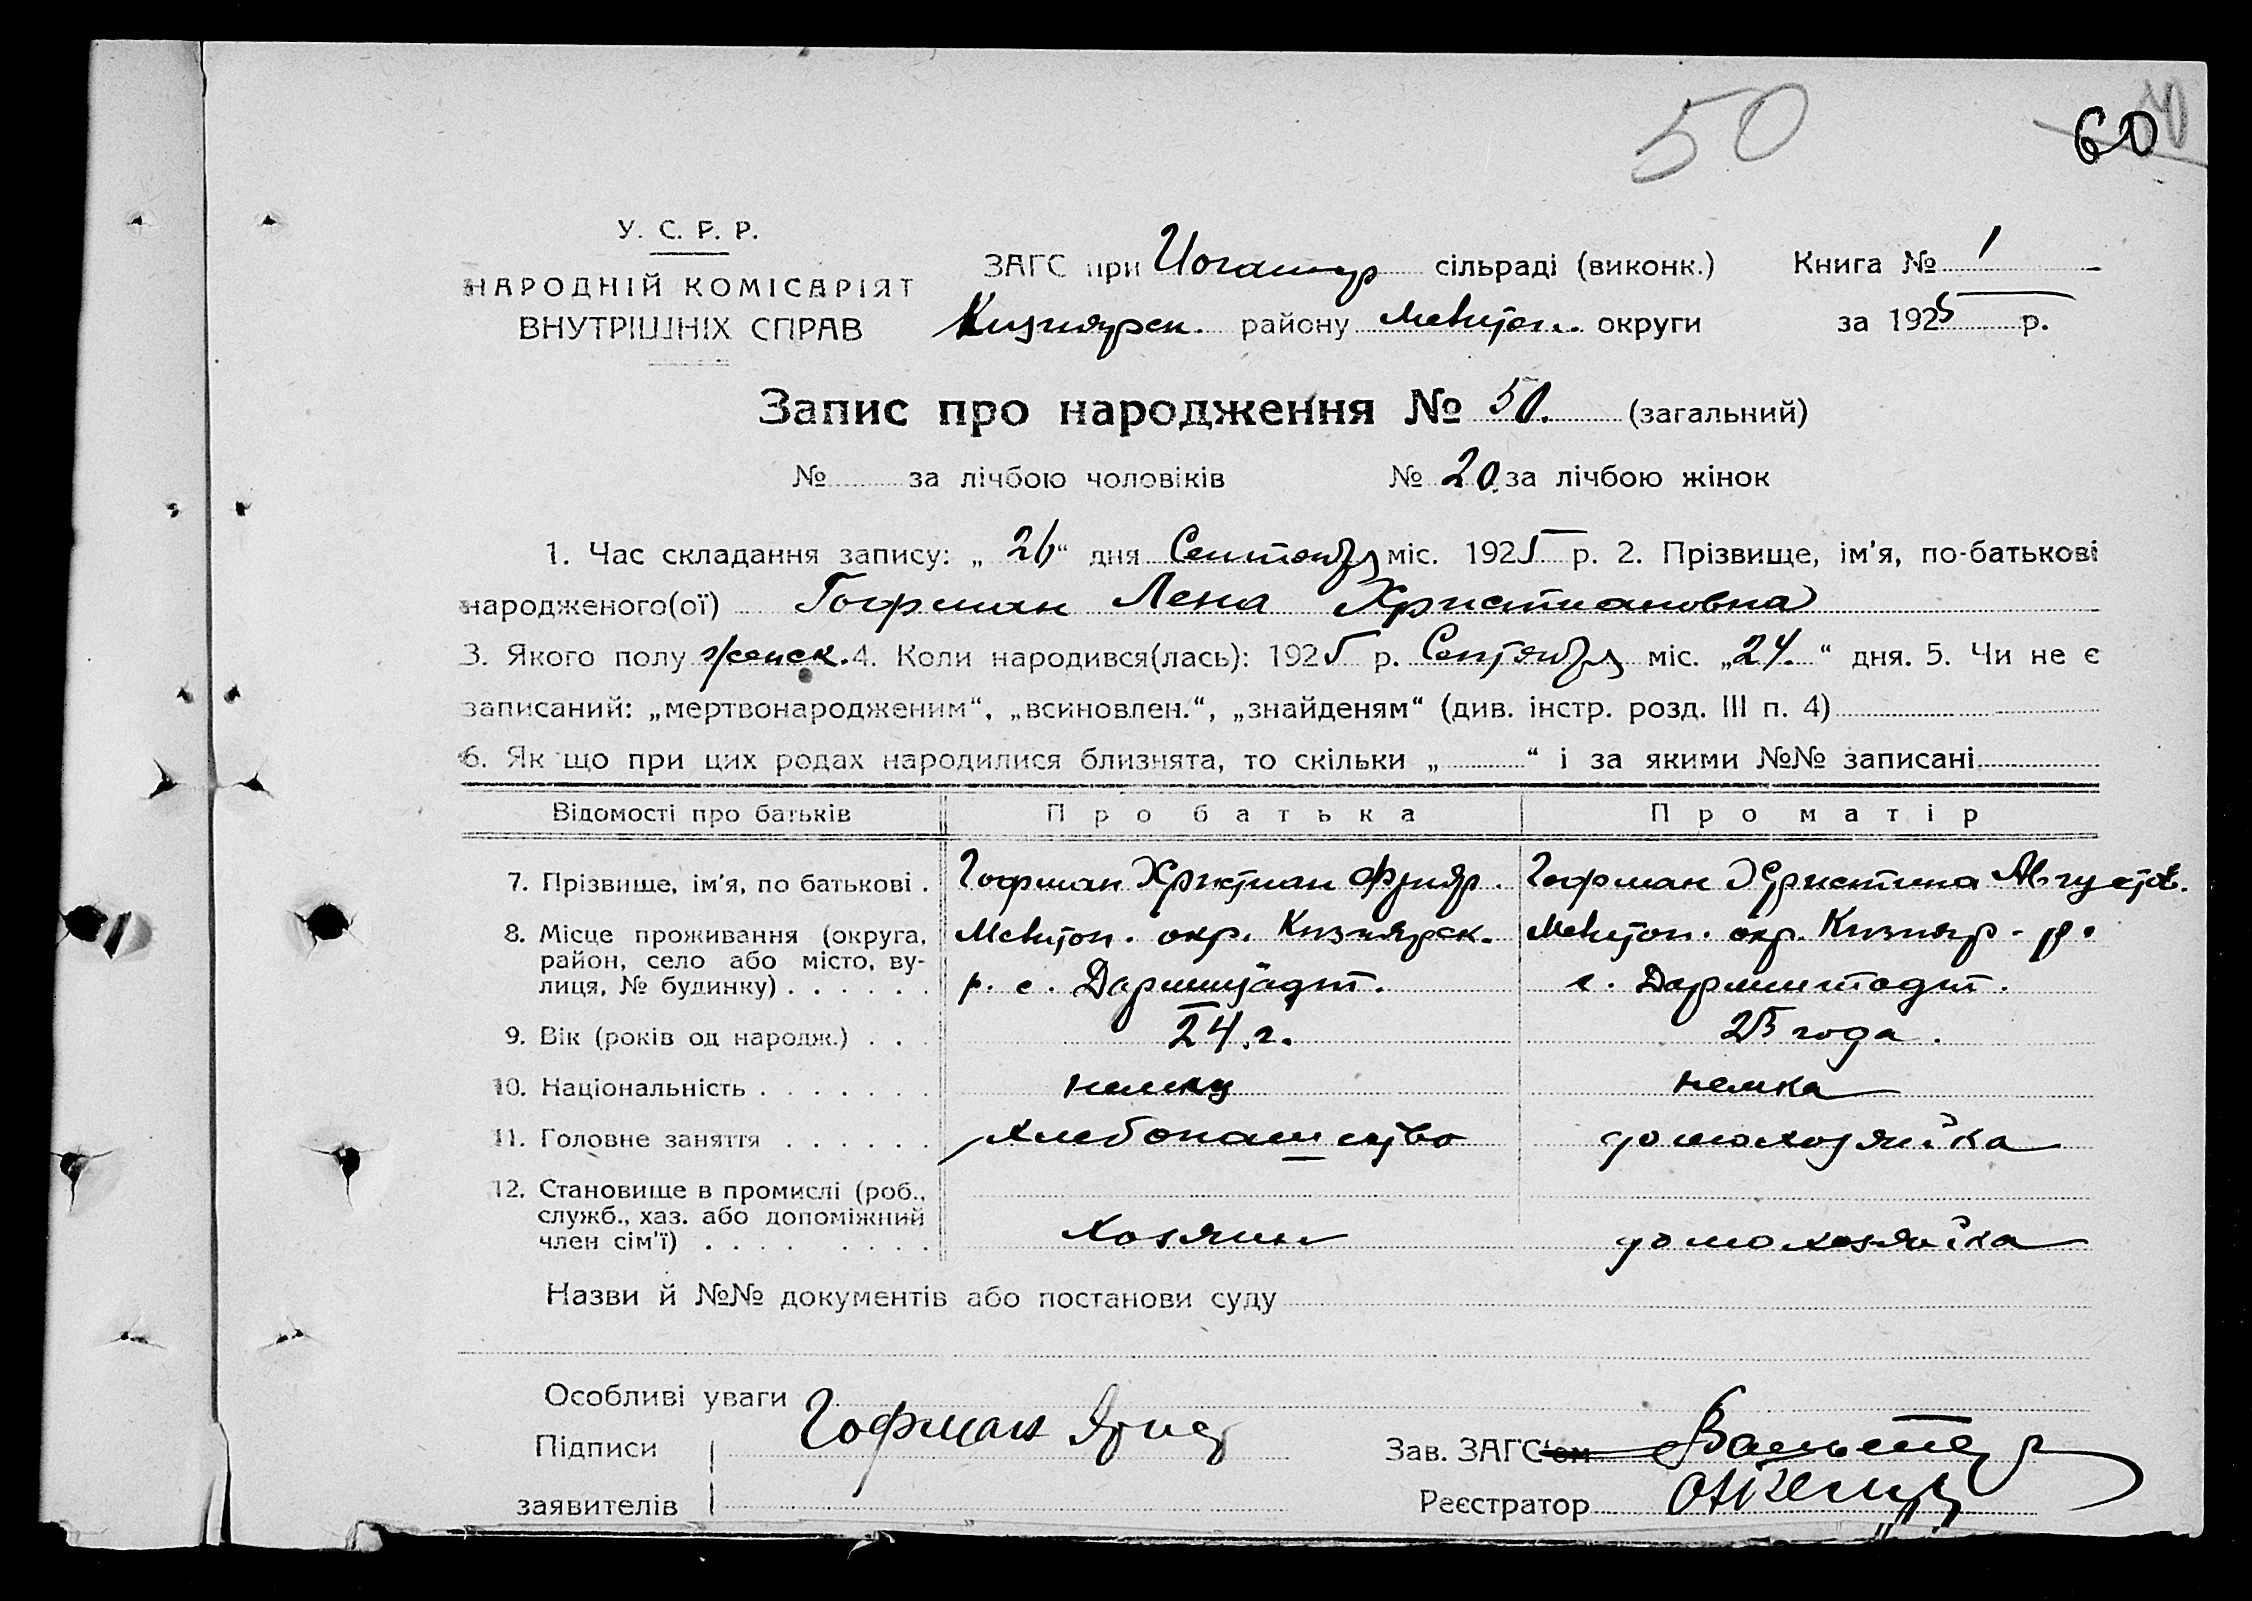 50
60
У. С. Р. Р.
НАРОДНІЙ КОМІСАРІЯТ
ВНУТРІШНІХ СПРАВ
ЗАГС при сільраді (виконк.) Книга № 1
района Мелитоп. округи за 1925 р.
Запис про народження № 50. (загальний)
№ за лічбою чоловіків № 20. за лічбою жінок
1. Час складання запису: „ 26 “ дня Сентября міс. 1925 р. 2. Прізвище, ім’я, по-батькові
народженого(ої) Гофман Лена Христиановна
3. Якого полу женск. 4. Коли народився(лась): 1925 р. Сентября міс. „24.“ дня. 5. Чи не є
записаний: „мертвонародженим“, „всиновлен.“, „знайденям“ (див. інстр. розд. III п. 4)
6. Як що при цих родах народилися близнята, то скільки „ “ і за якими №№ записані
Відомості про батьків Про батька Про матір
7. Прізвище, ім’я, по батькові . Гофман Христиан Гофман Христина Августов.
8. Місце проживання (округа, Мелитоп. окр. Мелитоп. окр.
район, село або місто, ву-
лиця, № будинку) . . . . . . р. с. Дармштадт. с. Дармштадт.
9. Вік (років од народж.) . . . 24 г. 25 года.
10. Національність . . . . . . . немец немка
11. Головне заняття . . . . . . хлебопашество домохозяйка
12. Становище в промислі (роб.,
служб., хаз. або допоміжний
член сім’ї) . . . . . . . . хозяин домохозяйка
Назви й №№ документів або постанови суду
Особливі уваги
Підписи Гофман Зав. ЗАГС'ом Вальтер
заявителів Реєстратор